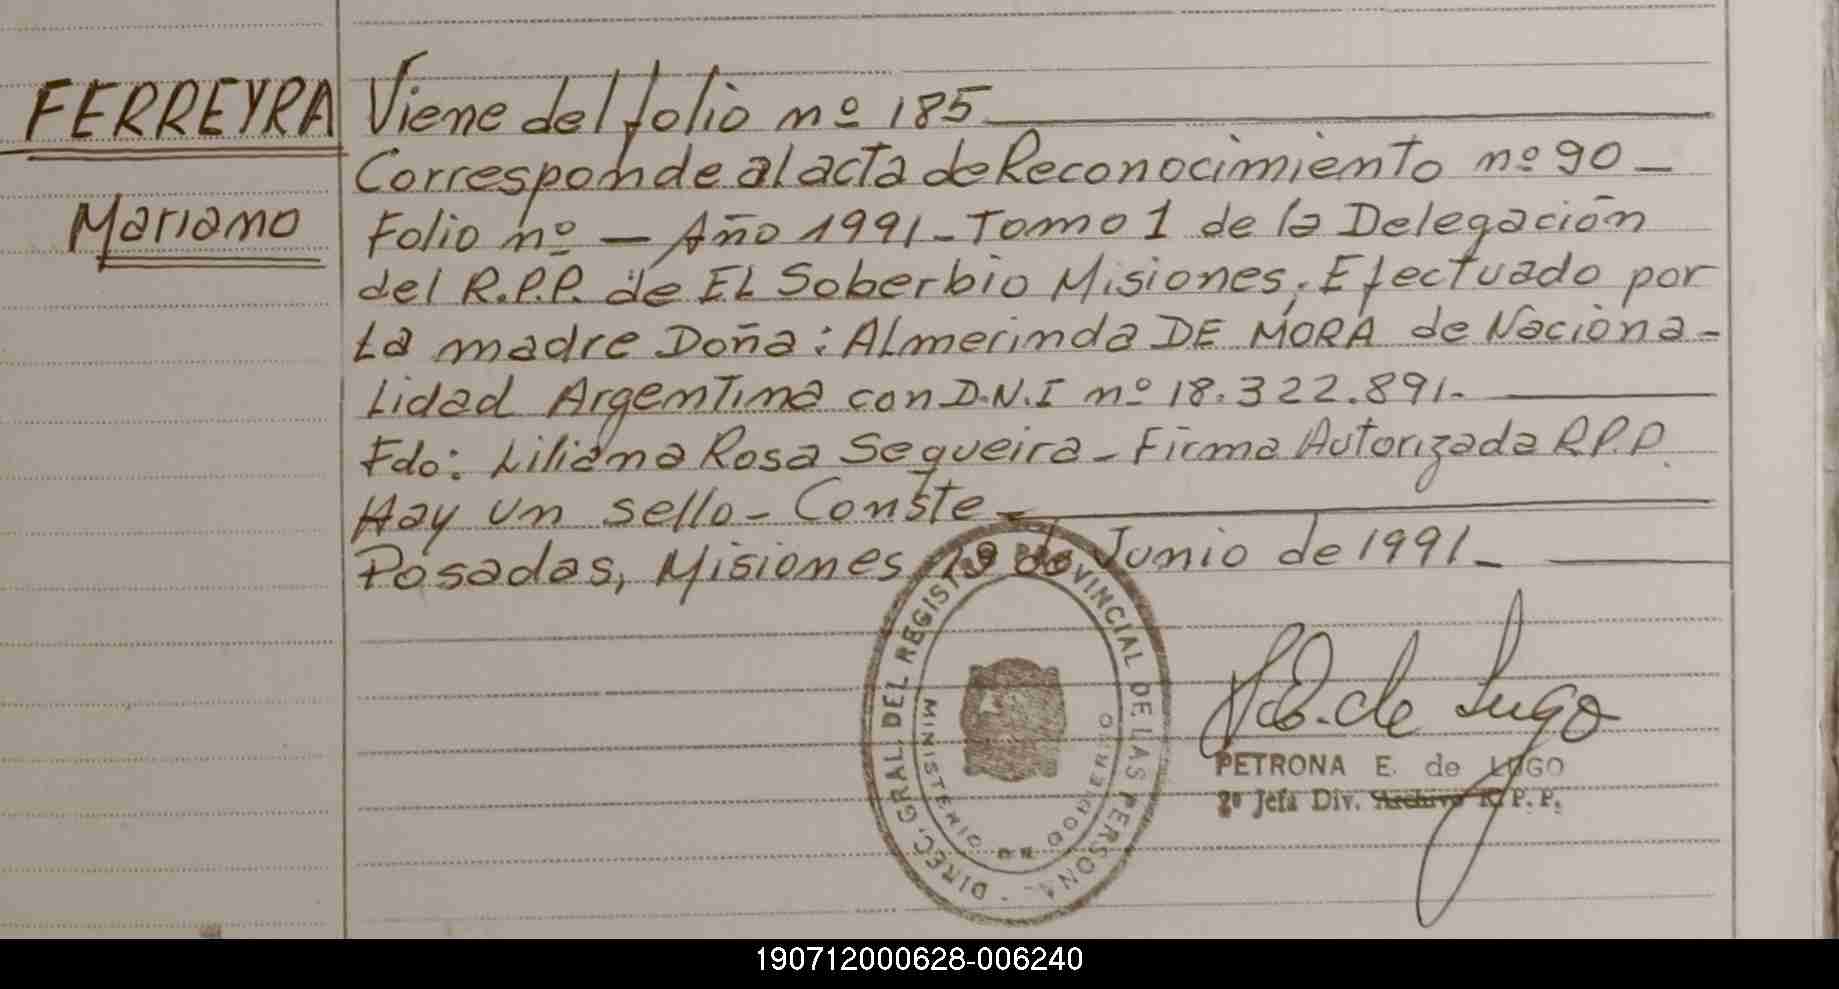 FERREYRA
Mariano
Viene del folio nº 185
Corresponde al acta de Reconocimiento nº 90 —
Folio nº — Año 1991 - Tomo 1 de la Delegación
del R.P.P. de EL Soberbio Misiones, Efectuado por
La madre Doña: ALmerinda DE MORA de Naciona-
Lidad Argentina con D.N.I nº 18.322.891.
Fdo: Liliana Rosa Sequeira - Firma Autorizada R.P.P.
Hay un sello - Conste
Posadas, Misiones 19 de Junio de 1991 -
DIREC. GRAL. DEL REGIST VINCIAL DE LAS PERSONA
MINISTERIO DE GOBIERNO
de Lugo
PETRONA E. de LUGO
2º Jefa Div. Archivo R. P. P.
190712000628-006240